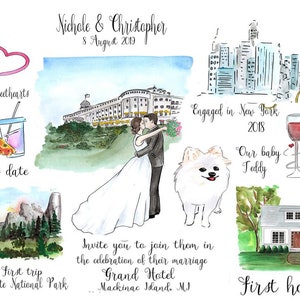 Nichole & Christopher
8 August 2019
Engaged in New York
2018
Our baby
Teddy
date
First trip
National Park
Invite you to join them in
the celebration of their marriage
Grand Hotel
Mackinac Island, MI
First